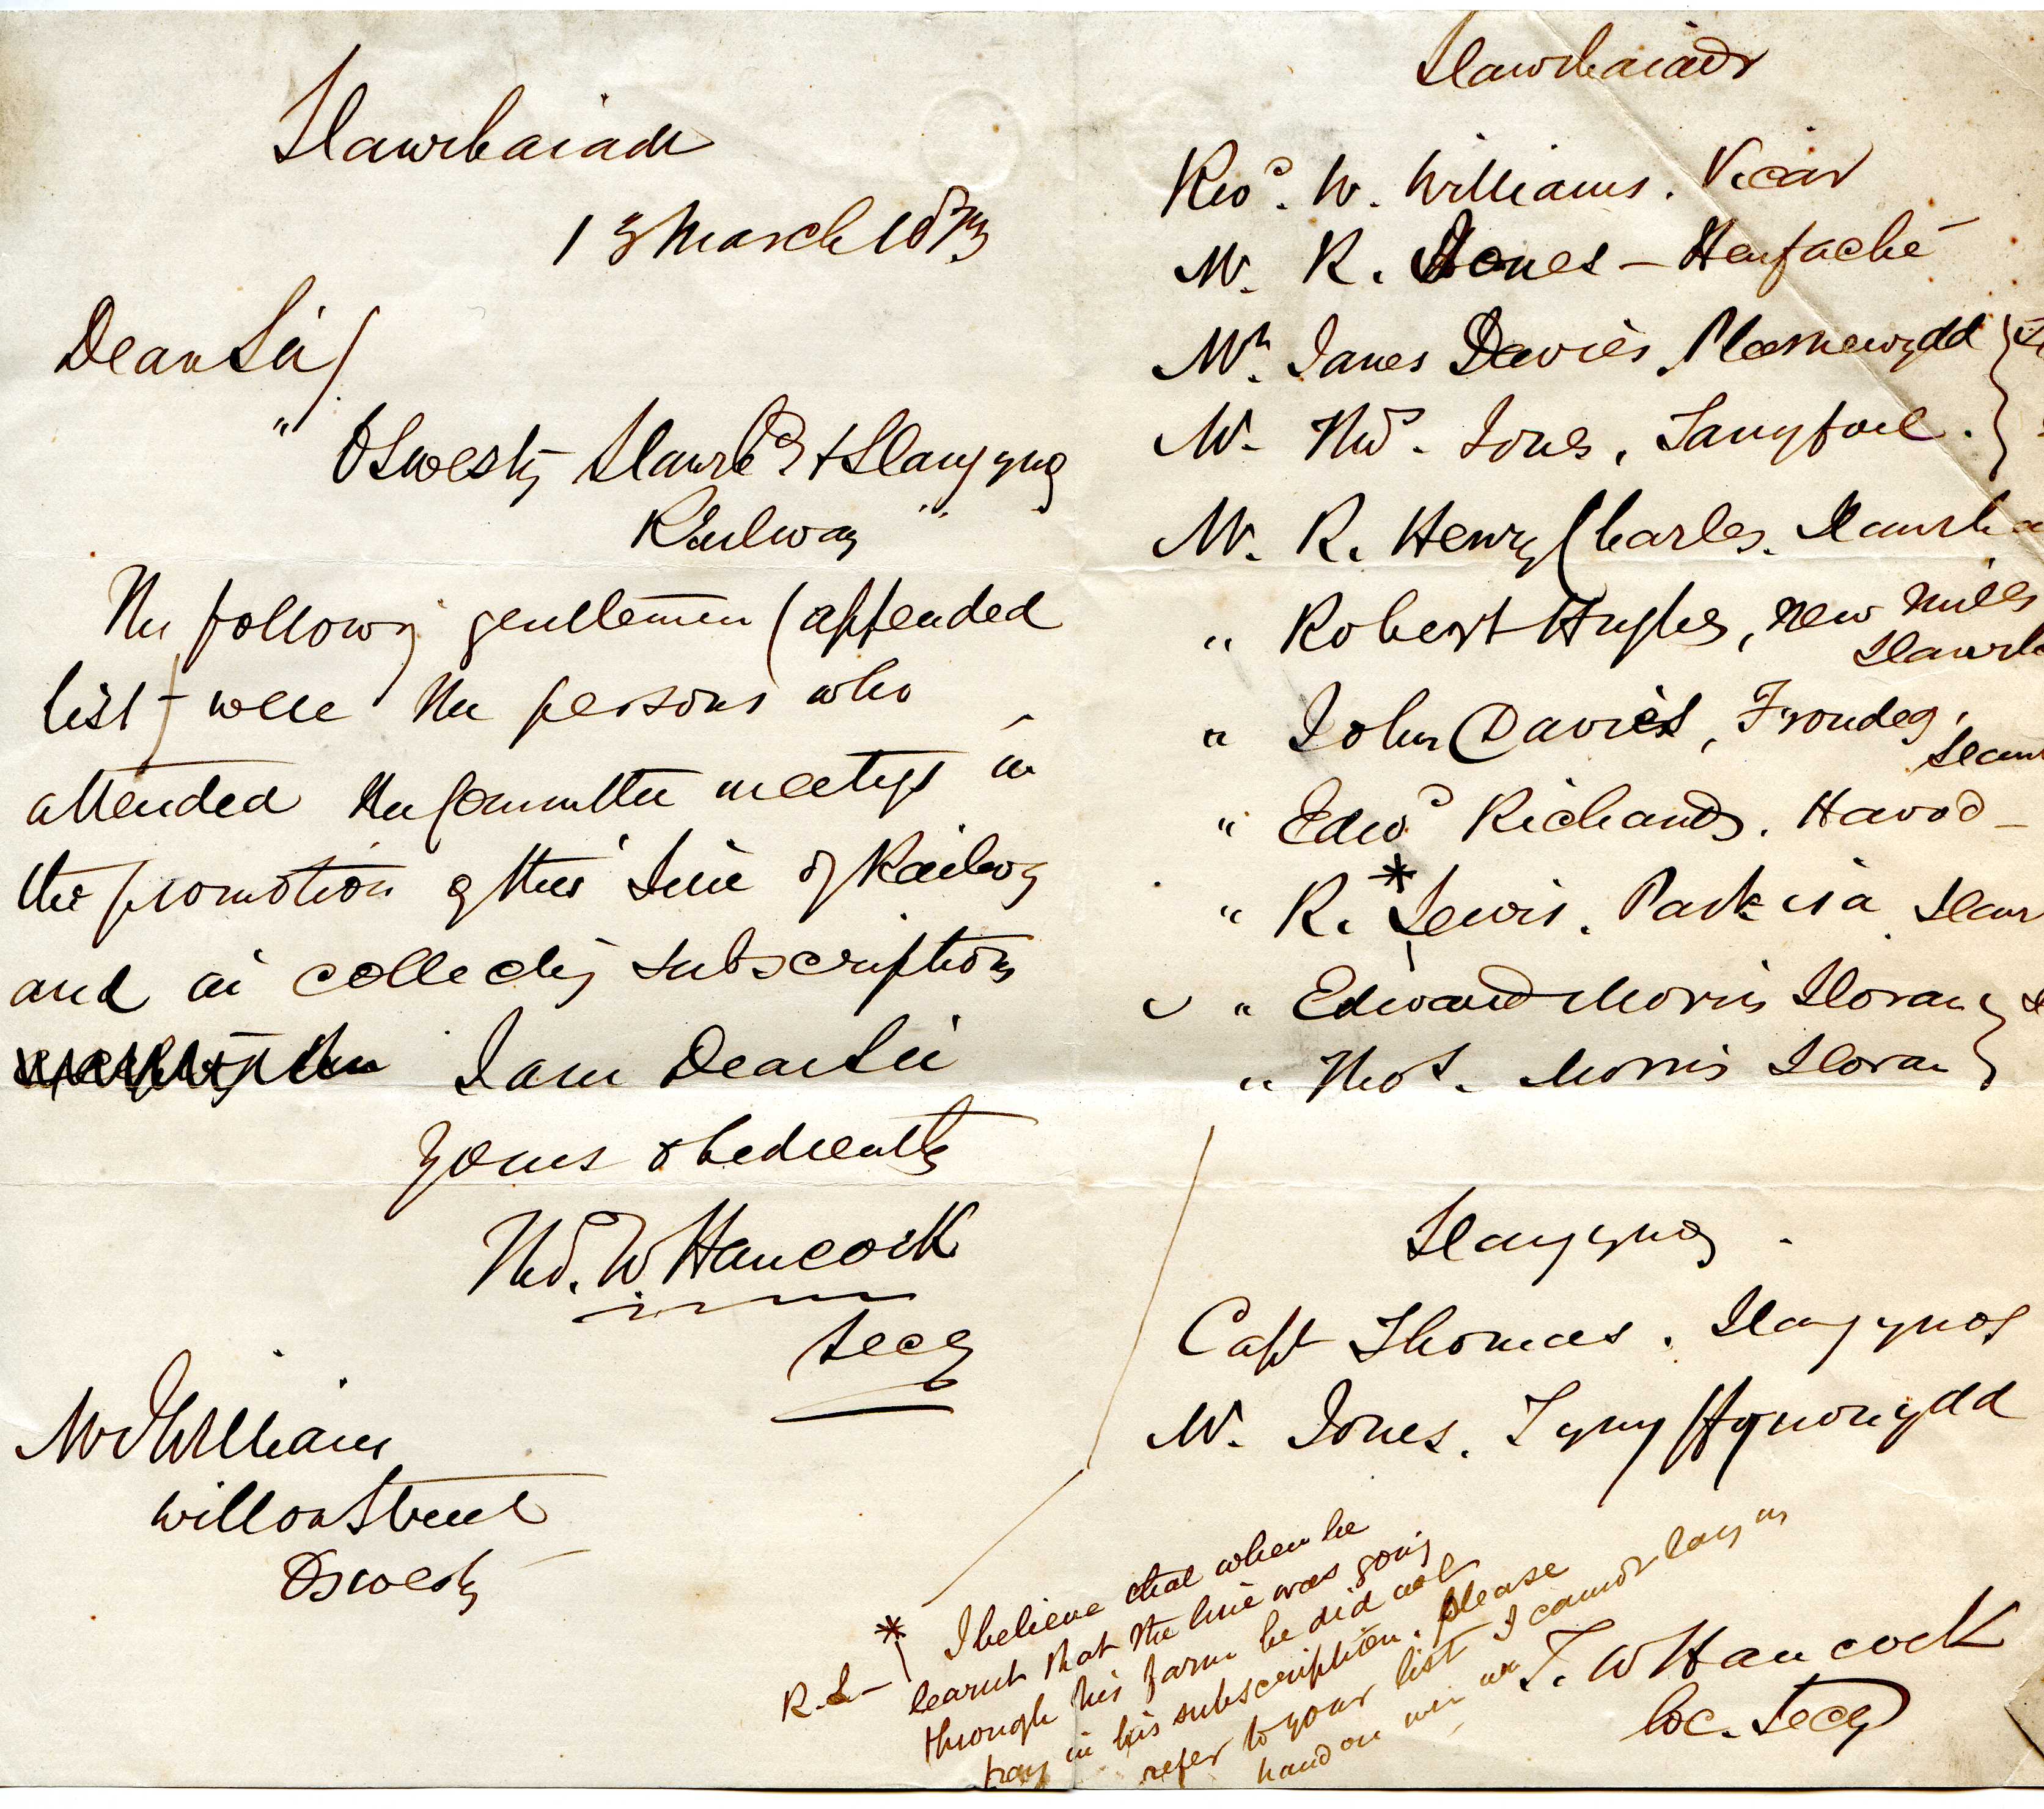 Llanrhaiadr
13 March 1873
Dear Sir/
" Oswestry Llanrh^d & Llangynog
Railway "
The following gentlemen (appended
list) were the persons who
attended the Committee meetings in
the promotion of this Line of Railway
and in collecting subscriptions
I am Dear Sir
Yours obediently
Tho^s. W Hancock
Secy
Mr William
Willow Street
Oswestry
Llanrhaiadr
Rev^d. W. Williams. Vicar
Mr. R. Jones – Henfache
Mr. James Davies, Plasnewydd
Mr. Tho^s. Jones, Tanyfoel.
Mr. R. Henry Charles. Llanrha
" Robert Hughes, New Mills
Llanrh
" John Davies, Frondeg,
Llanr
" Edw^d Richards. Havod –
" R. * Lewis. Park isa Llanr
" Edward Morris Lloran
" Thos. Morris Lloran
Llangynog.
Capt Thomas. Llangynog
Mr. Jones. Tyny Ffynonydd
* R.L– I believe that when he
learnt that the line was going
through his farm he did not
pay in his subscription. please
refer to your list I cannot lay my
hand on mine
T. W Hancock
loc. Secy